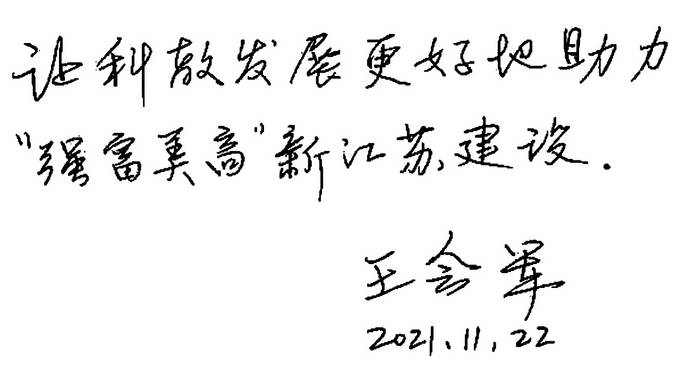 让科教发展更好地助力
“强富美高”新江苏建设.
王会军
2021.11.22